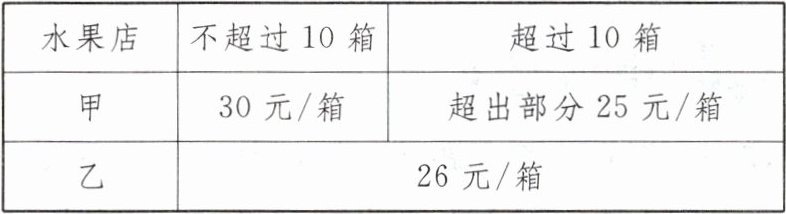 水果店 不超过 10 箱 超过 10 箱
甲 30 元/箱 超出部分 25 元/箱
乙 26 元/箱